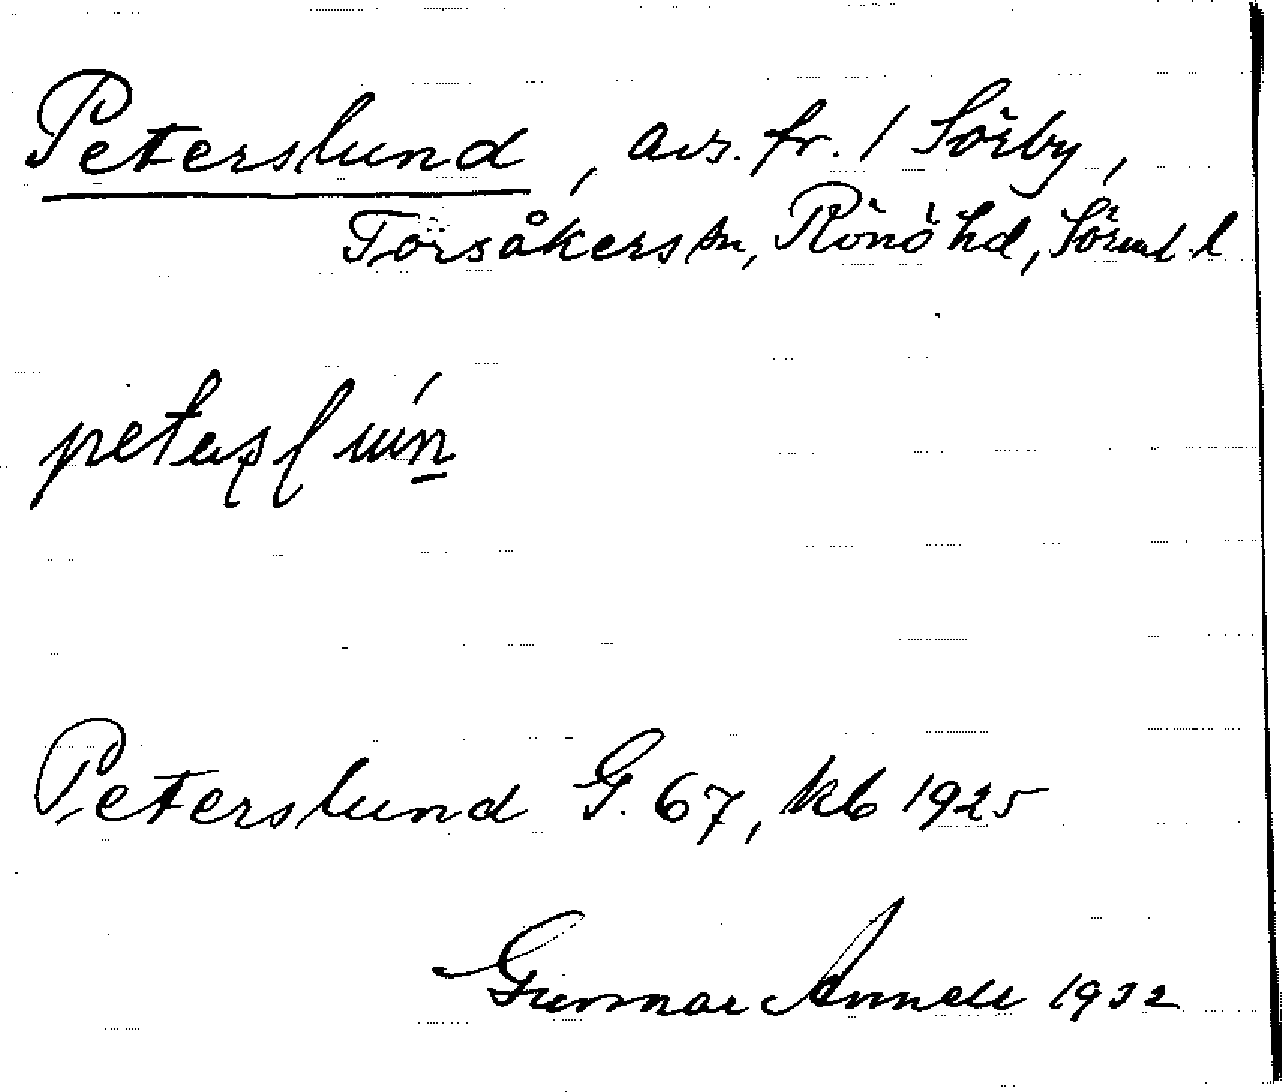 Peterslund, avs. fr. 1 Sörby,
Torsåkers sn, Rönö hd, Sörml. l
Peterslund G. 67, kb 1925
Gunnar Annell 1932